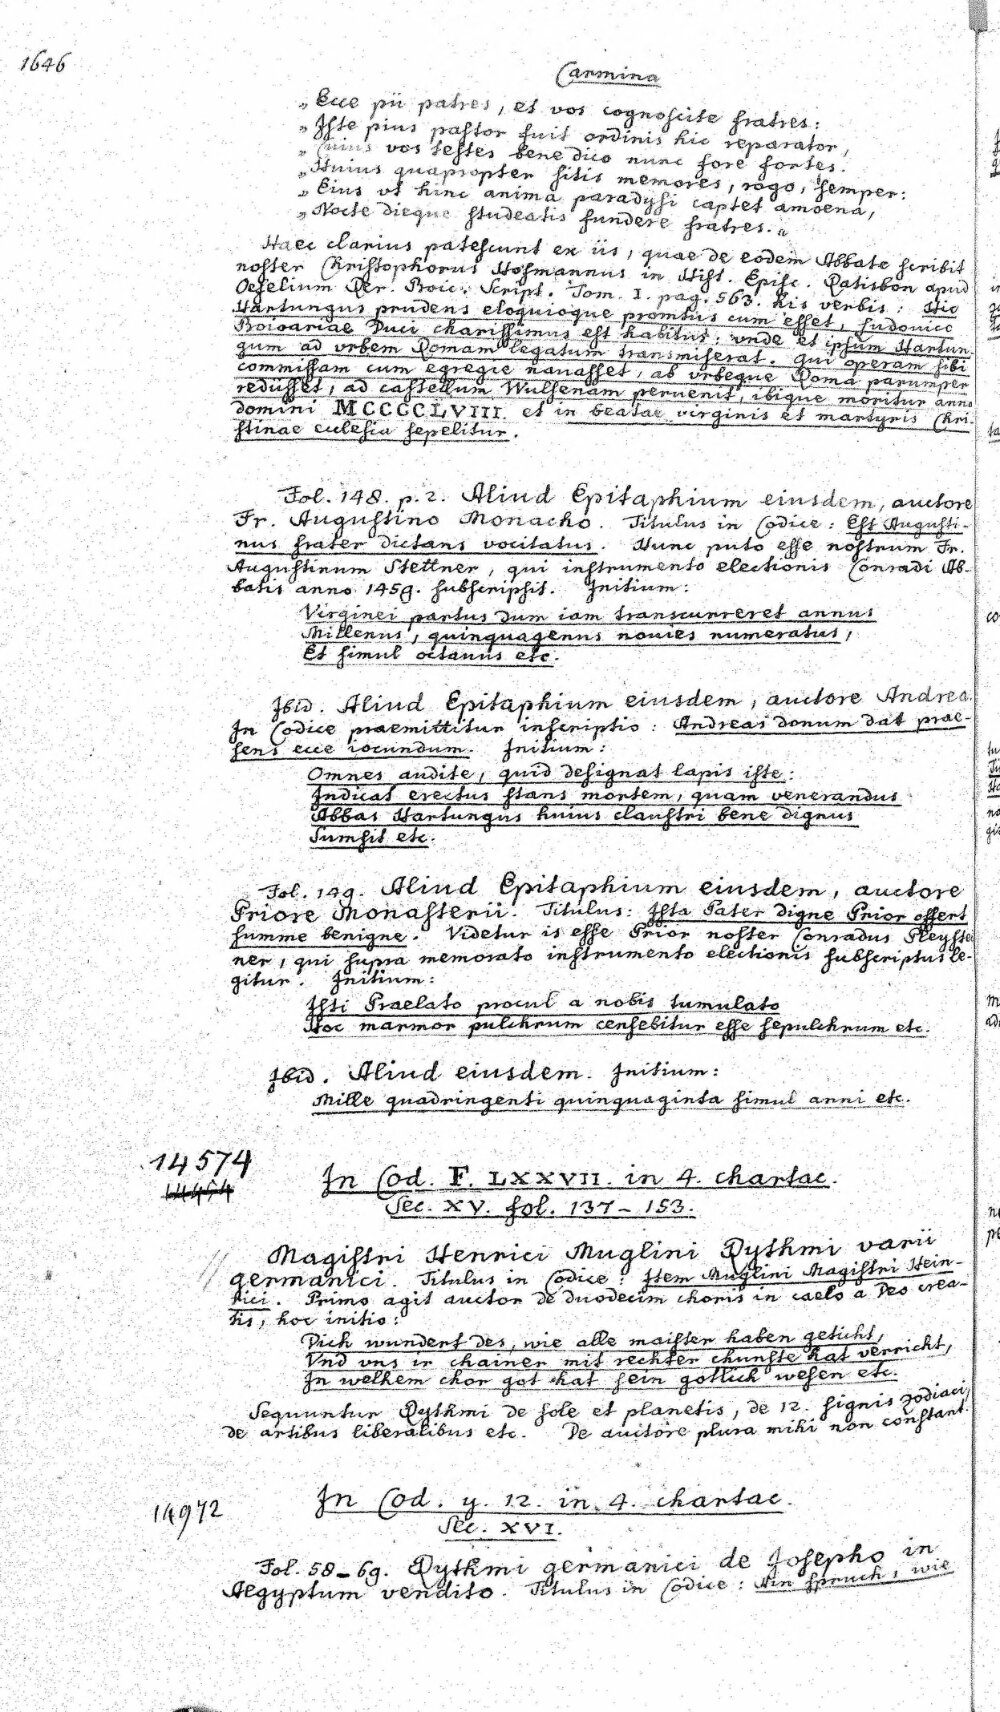 1646
Carmina
„ Ecce pii patres, et vos cognoscite fratres:
„ Iste pius pastor fuit ordinis hic reparator,
„ Cuius vos testes bene dico nunc fore fortes.
„ Huius quapropter sitis memores, rogo, semper:
„ Eius vt hinc anima paradysi captet amoena,
„ Nocte dieque studeatis fundere fratres. “
Haec clarius patescunt ex iis, quae de eodem Abbate scribit
noster Christophorus Hofmannus in Hist. Episc. Ratisbon apud
Oefelium Rer. Boic. Script. Tom. I. pag. 563. his verbis: Hic
Hartungus prudens eloquioque promtus cum esset, Ludouico
Boioariae Duci charissimus est habitus: vnde et ipsum Hartun
gum ad vrbem Romam legatum transmiserat. Qui operam sibi
commissam cum egregie nauasset, ab vrbeque Roma parumper
redüsset, ad castellum Wulsenam peruenit, ibique moritur anno
domini MCCCCLVIII. et in beatae virginis et martyris Chri-
stinae eclesia sepelitur.
Fol. 148. p. 2. Aliud Epitaphium eiusdem, auctore
Fr. Augustino Monacho. Titulus in Codice: Est Augusti-
nus frater dictans vocitatus. Hunc puto esse nostrum Fr.
Augustinum Stettner, qui instrumento electionis Conradi Ab-
batis anno 1459. subscripsit. Initium:
Virginei partus dum iam transcurreret annus
Millenus, quinquagenus nouies numeratus,
Et simul octauus etc.
Ibid. Aliud Epitaphium eiusdem, auctore Andrea.
In Codice praemittitur inscriptio: Andreas donum dat prae-
sens ecce iocundum. Initium:
Omnes audite, quid designat lapis iste:
Indicat erectus stans mortem, quam venerandus
Abbas Hartungus huius claustri bene dignus
Sumsit etc.
Fol. 149. Aliud Epitaphium eiusdem, auctore
Priore Monasterii. Titulus: Ista Pater digne Prior offert
summe benigne. Videtur is esse Prior noster Conradus Pleyste
ner, qui supra memorato instrumento electionis subscriptus le-
gitur. Initium:
Isti Praelato procul a nobis tumulato
Hoc marmor pulchrum censebitur esse sepulchrum etc.
Ibid. Aliud eiusdem. Initium:
Mille quadringenti quinquaginta simul anni etc.
14574
14454
In Cod. F. LXXVII. in 4. chartac.
Sec. XV. fol. 137 - 153.
Magistri Henrici Muglini Rythmi varii
germanici. Titulus in Codice: Item Muglini Magistri Hein-
rici. Primo agit auctor de duodecim choris in caelo a Deo crea-
tis, hoc initio:
Dich wundert des, wie alle maister haben geticht,
Vnd vns ir chainer mit rechter chunste hat verricht,
In welhem chor got hat sein gotlich wesen etc.
Sequuntur Rythmi de sole et planetis, de 12. signis zodiaci,
de artibus liberalibus etc. De auctore plura mihi non constant.
14972
In Cod. y. 12. in 4. chartac.
Sec. XVI.
Fol. 58 - 69. Rythmi germanici de Josepho in
Aegyptum vendito. Titulus in Codice: Ain spruch, wie